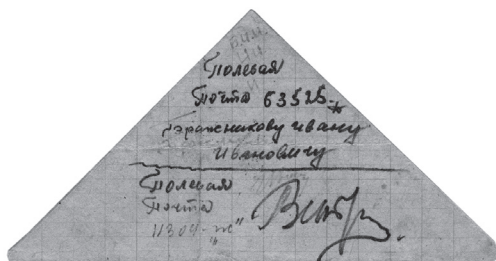 Полевая
Почта 63525-ж
Ивану
Ивановичу
Полевая
Почта
11304-"ж"